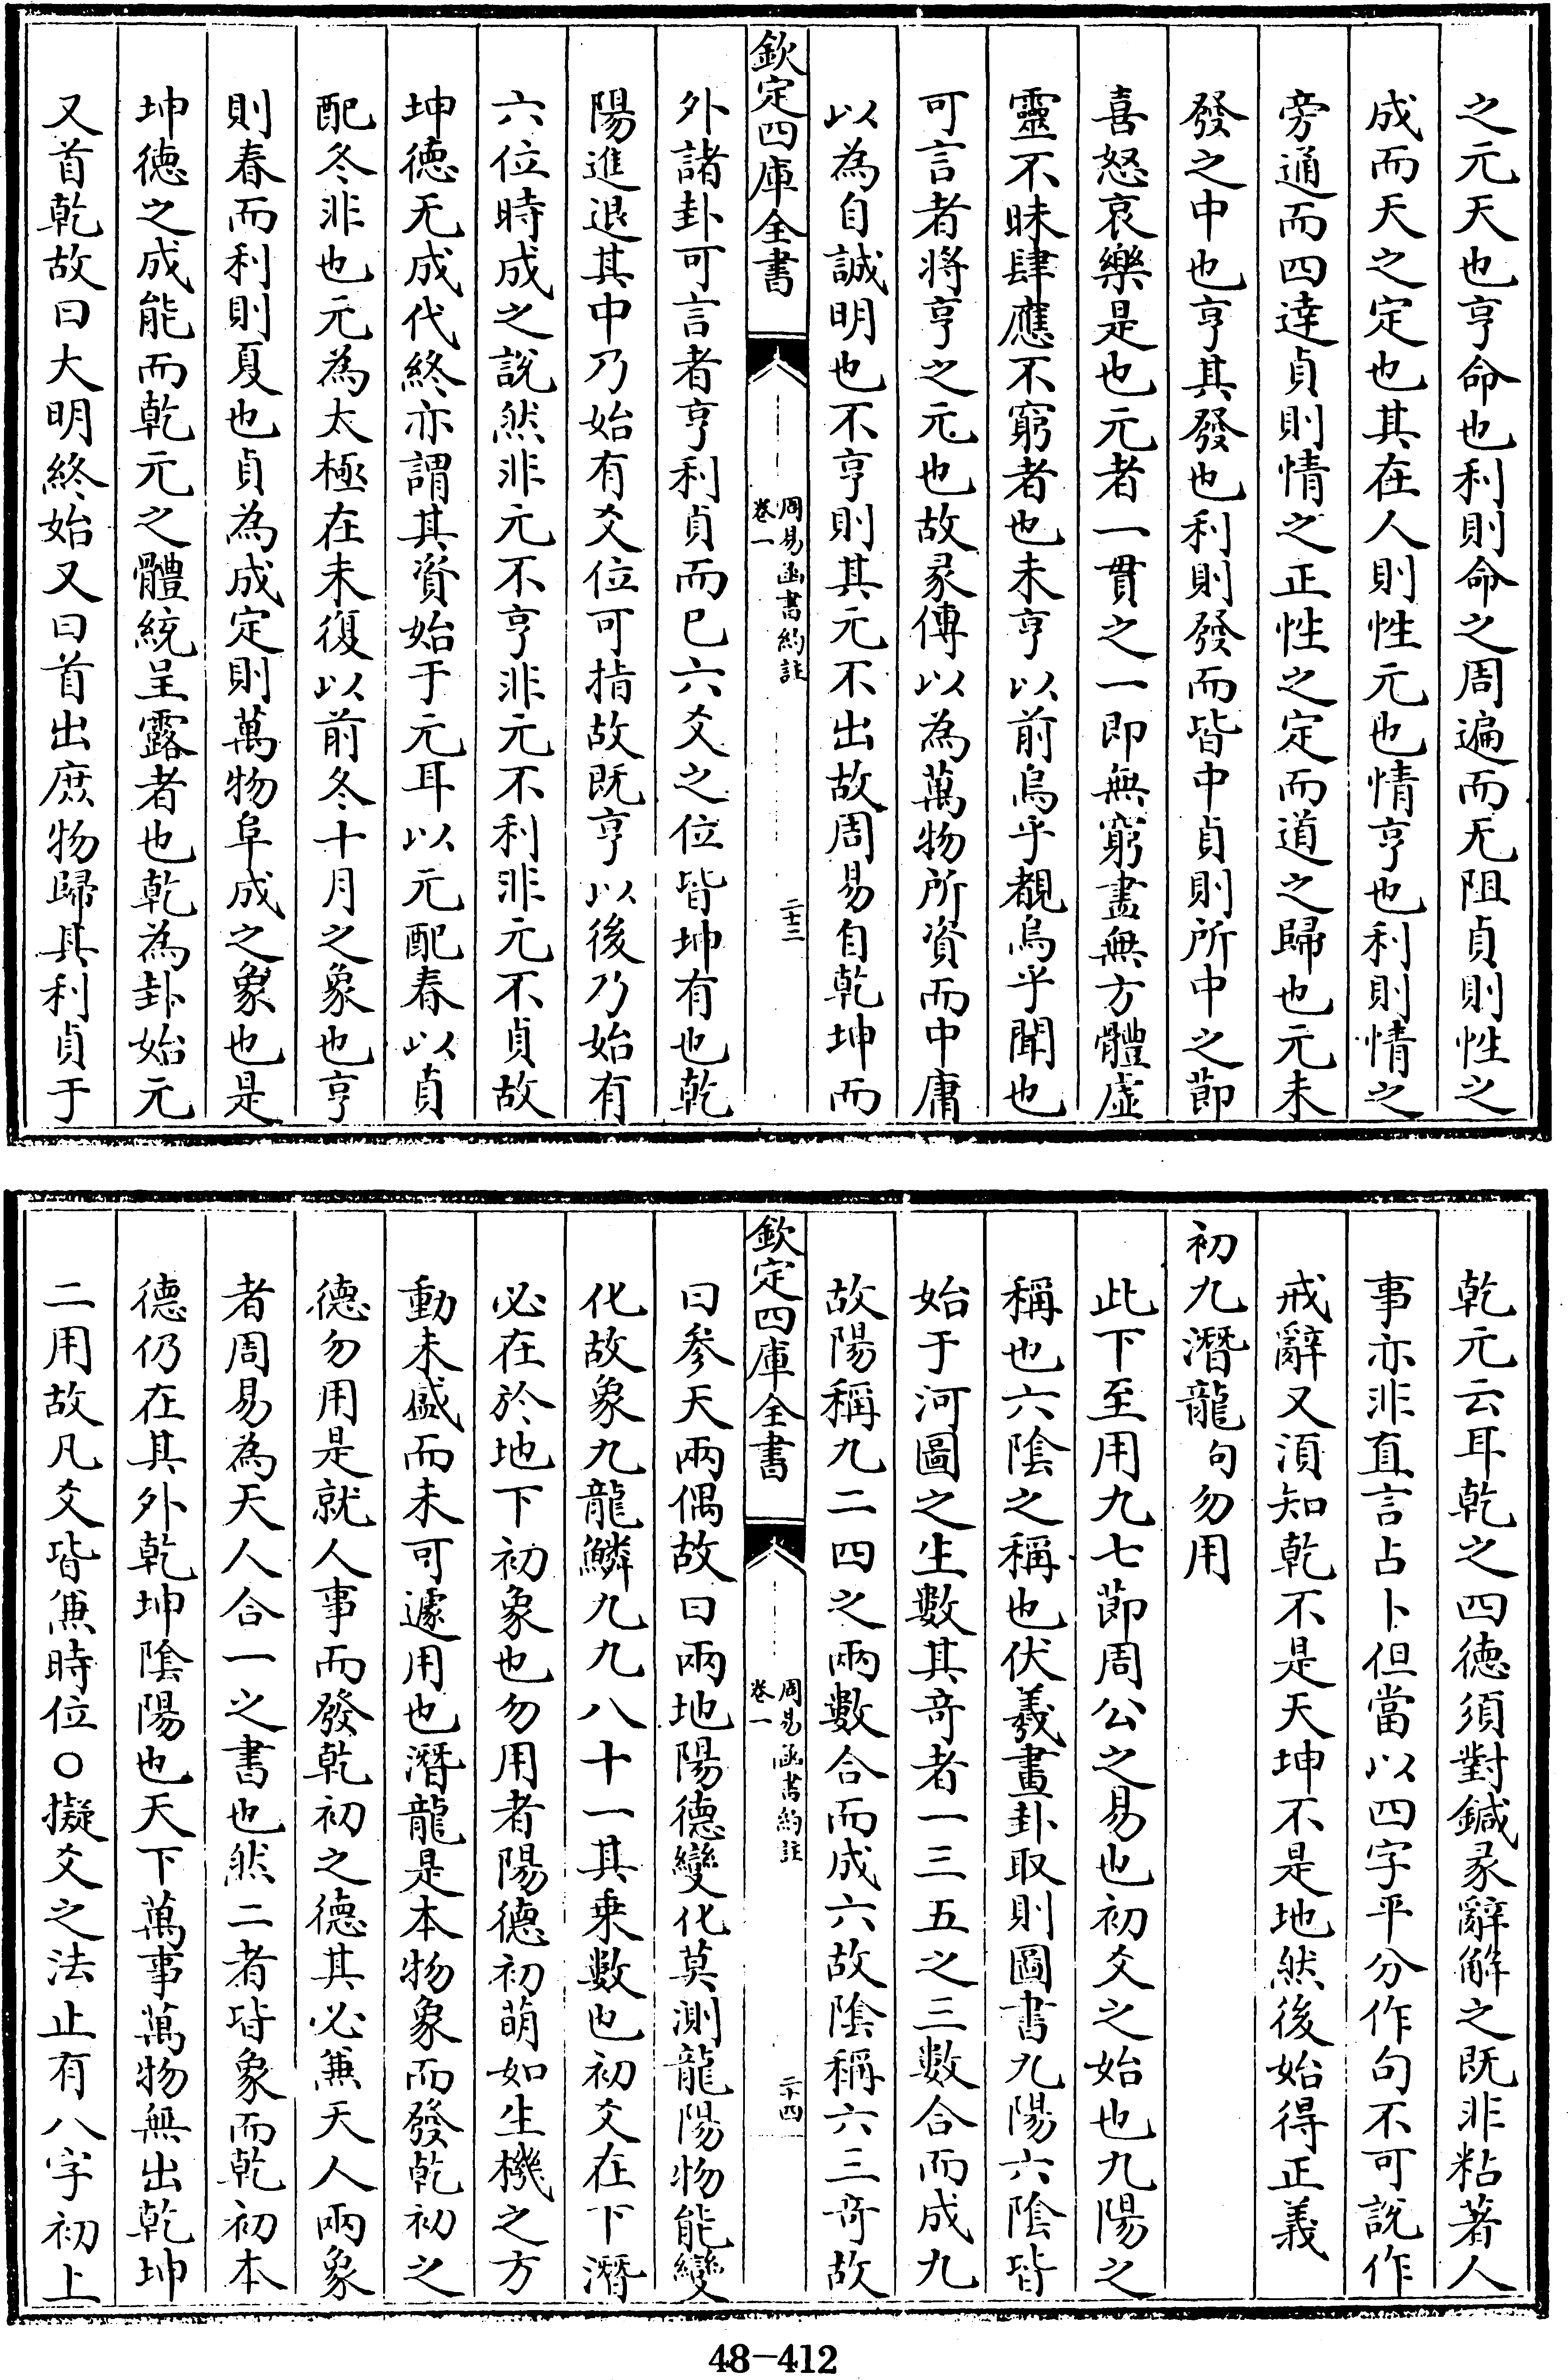 之元天也亨命也利則命之周遍而无阻貞則性之
成而天之定也其在人則性元也情亨也利則情之
旁通而四達貞則情之正性之定而道之歸也元未
發之中也亨其發也利則發而皆中貞則所中之節
喜怒哀樂是也元者一貫之一即無窮盡無方體虛
靈不昧肆應不窮者也未亨以前烏乎覩烏乎聞也
可言者將亨之元也故彖傳以為萬物所資而中庸
以為自誠明也不亨則其元不出故周易自乾坤而
欽定四庫全書
周易函書約註
卷一
二十三
外諸卦可言者亨利貞而已六爻之位皆坤有也乾
陽進退其中乃始有爻位可指故既亨以後乃始有
六位時成之說然非元不亨非元不利非元不貞故
坤德无成代終亦謂其資始于元耳以元配春以貞
配冬非也元為太極在未復以前冬十月之象也亨
則春而利則夏也貞為成定則萬物阜成之象也是
坤德之成能而乾元之體統呈露者也乾為卦始元
又首乾故曰大明終始又曰首出庶物歸其利貞于
乾元云耳乾之四德須對鍼彖辭解之既非粘著人
事亦非直言占卜但當以四字平分作句不可說作
戒辭又須知乾不是天坤不是地然後始得正義
初九潛龍句勿用
此下至用九七節周公之易也初爻之始也九陽之
稱也六陰之稱也伏羲畫卦取則圖書九陽六陰皆
始于河圖之生數其奇者一三五之三數合而成九
故陽稱九二四之兩數合而成六故陰稱六三奇故
欽定四庫全書
周易函書約註
卷一
二十四
曰參天兩偶故曰兩地陽德變化莫測龍陽物能變
化故象九龍鱗九九八十一其乗數也初爻在下潛
必在於地下初象也勿用者陽德初萌如生機之方
動未盛而未可遽用也潛龍是本物象而發乾初之
德勿用是就人事而發乾初之德其必兼天人兩象
者周易為天人合一之書也然二者皆象而乾初本
德仍在其外乾坤陰陽也天下萬事萬物無出乾坤
二用故凡爻皆兼時位○擬爻之法止有八字初上
48-412